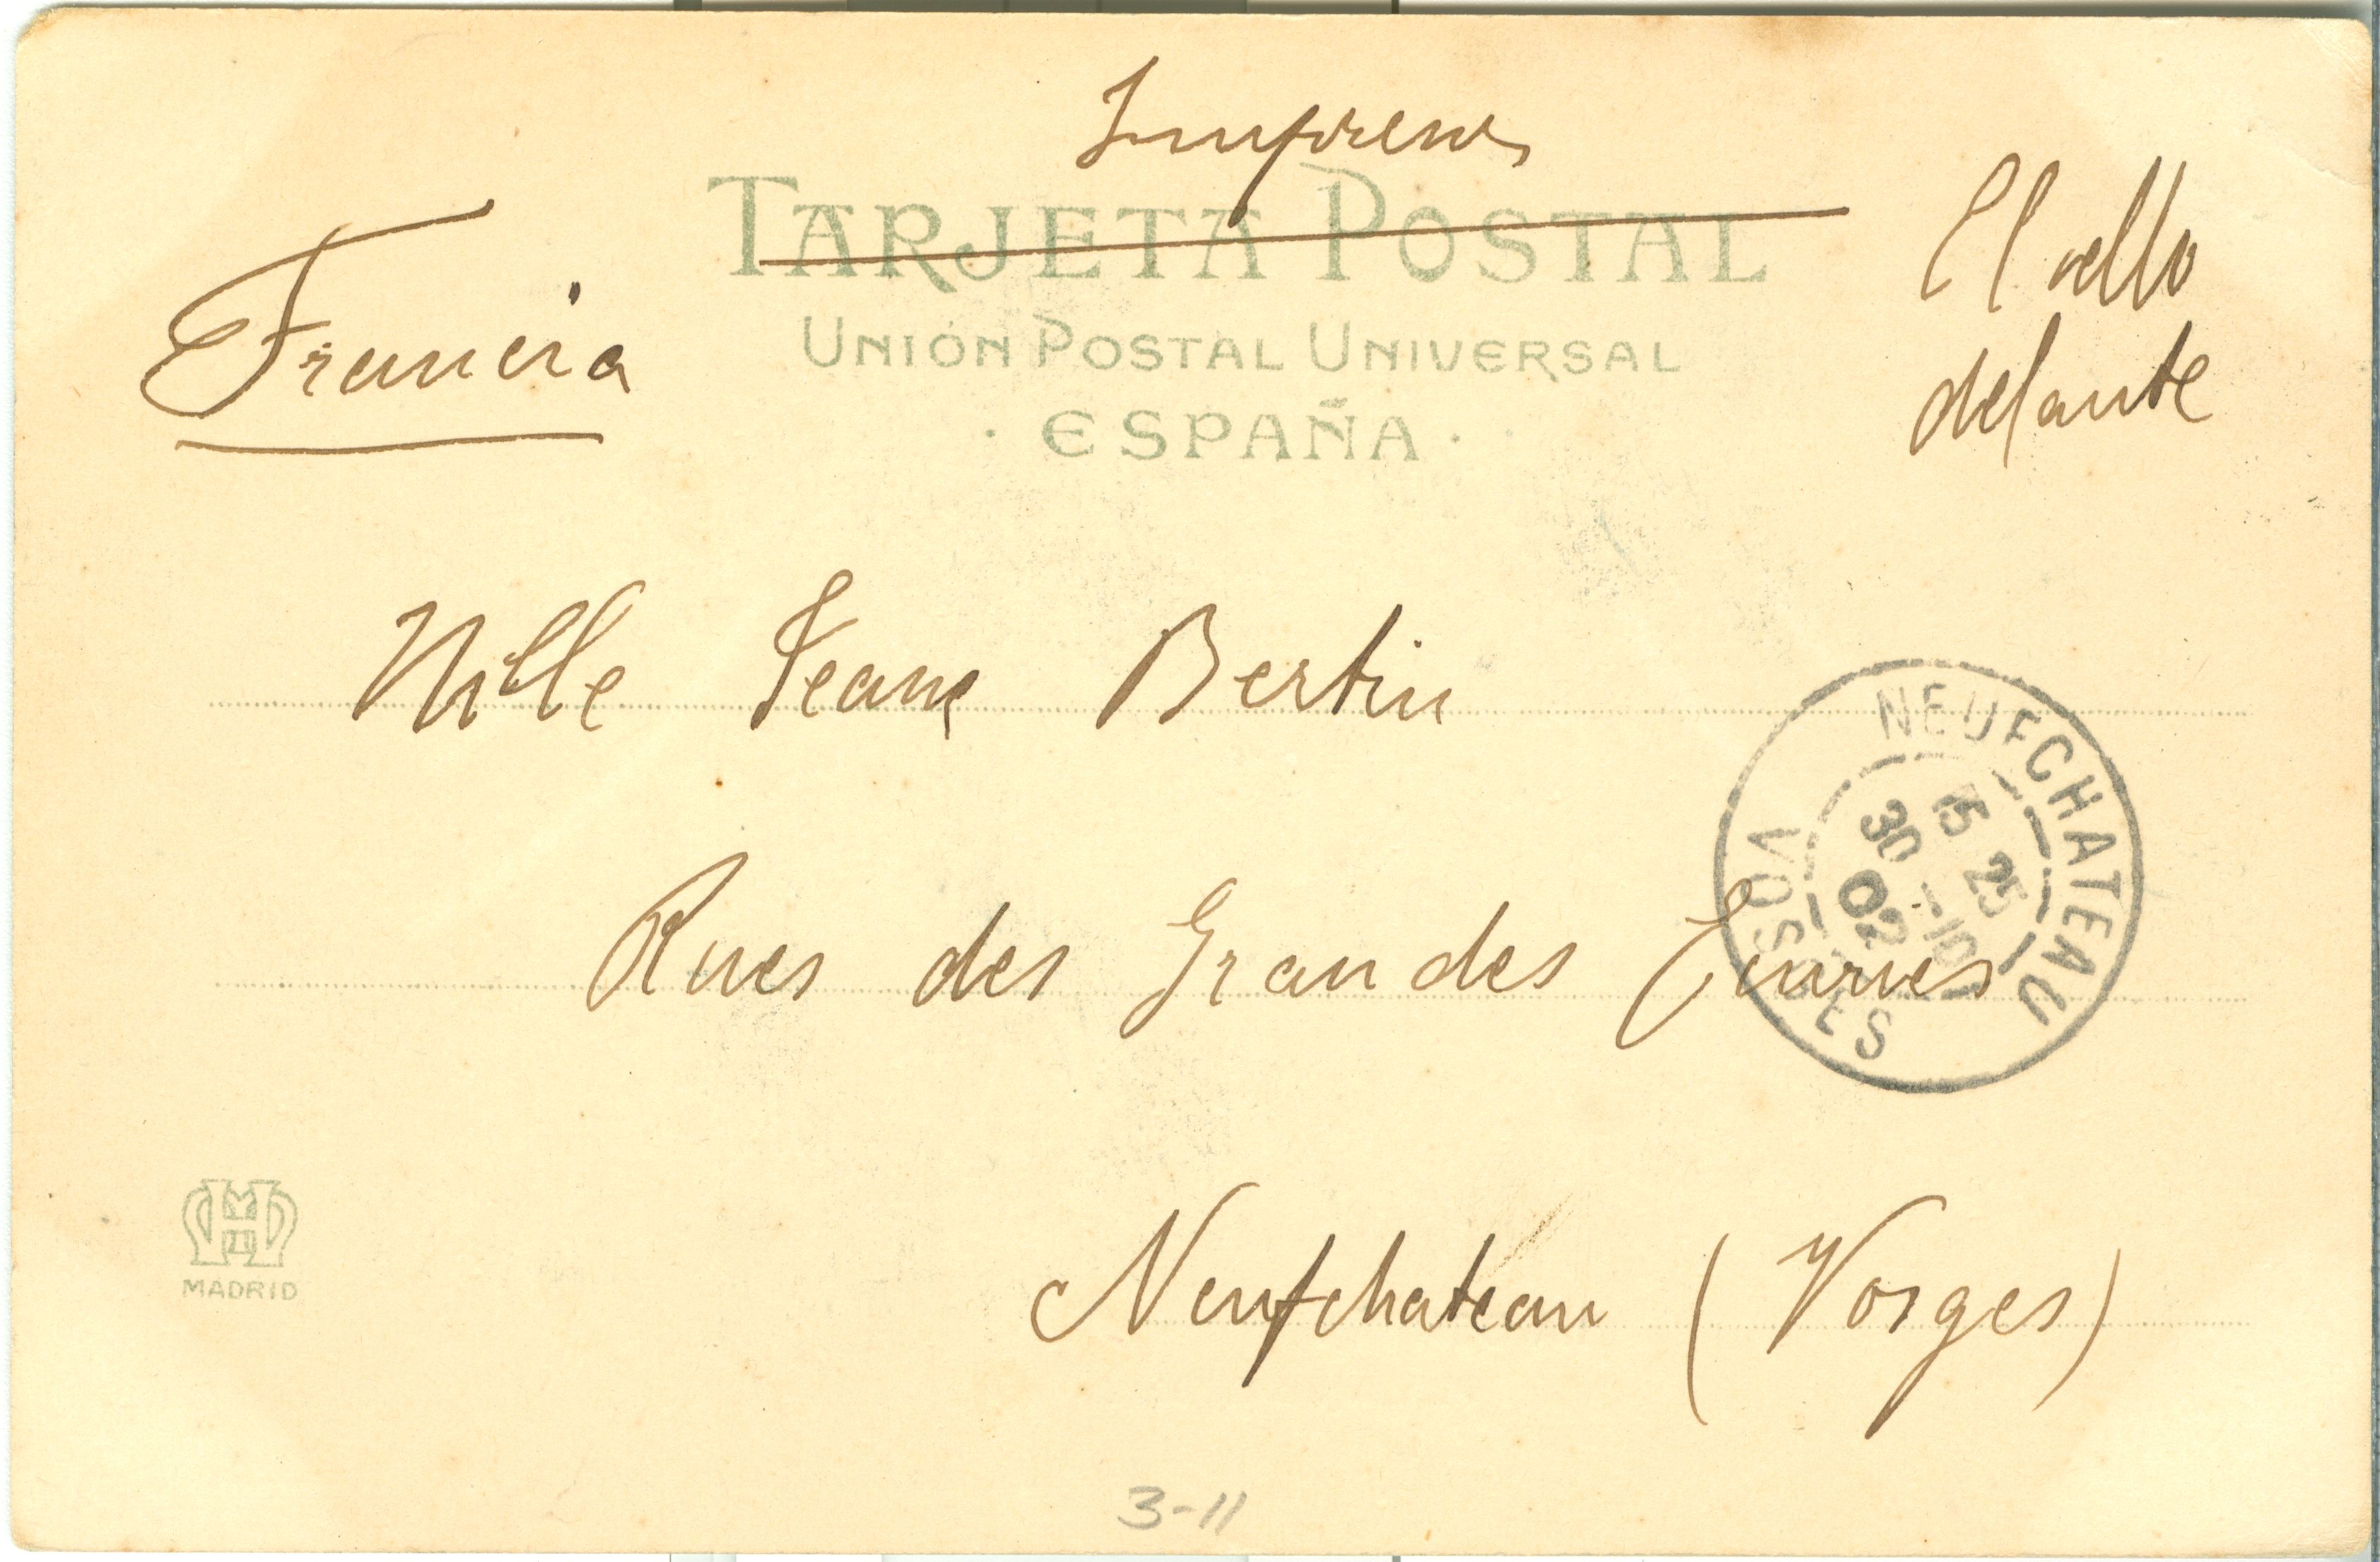 Impresos
TARJETA POSTAL
UNIÓN POSTAL UNIVERSAL
· ESPAÑA ·
Francia
El sello
delante
Mlle Jeane Bertin
Rues des Grandes Ecuries
Neufchateau (Vosges)
NEUFCHATEAU
15 25
30 -10
02
VOSGES
MADRID
3-11